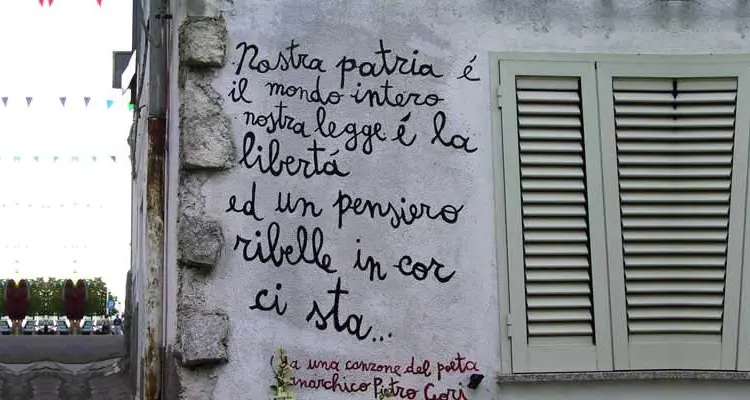 Nostra patria é
il mondo intero
nostra legge é la
libertá
ed un pensiero
ribelle in cor
ci sta...
(da una canzone del poeta
anarchico Pietro Gori